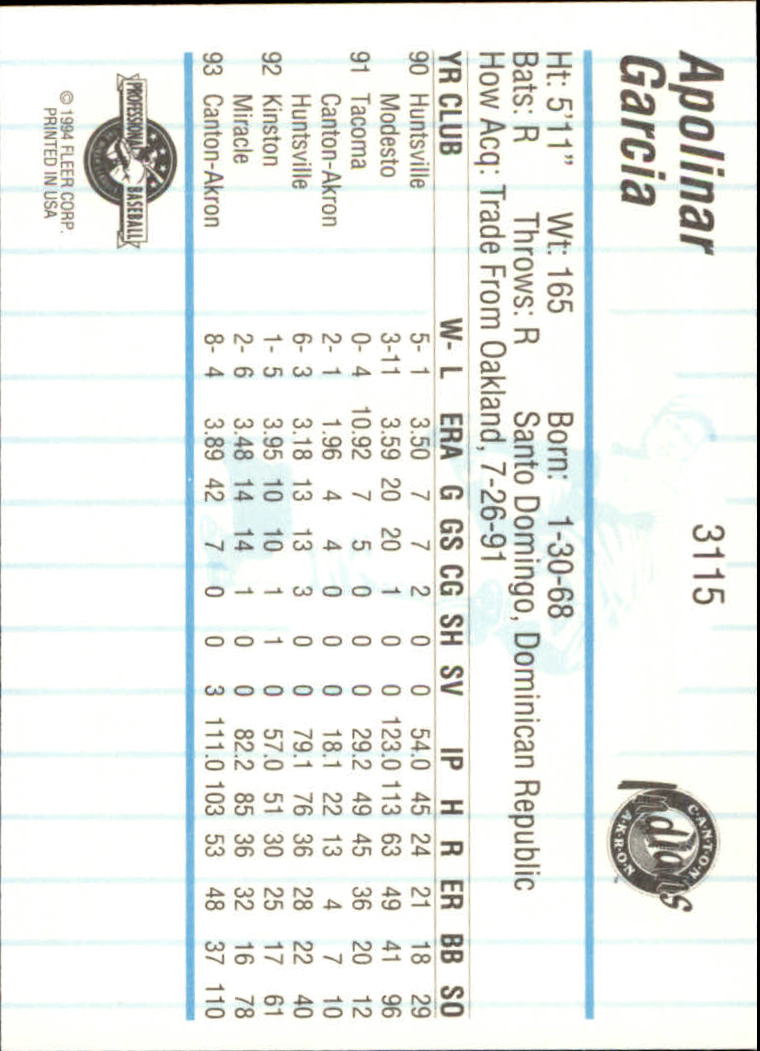 Apolinar
Garcia
3115
CANTON
Indians
AKRON
Ht: 5'11" Wt: 165 Born: 1-30-68
Bats: R Throws: R Santo Domingo, Dominican Republic
How Acq: Trade From Oakland, 7-26-91
YR CLUB W- L ERA G GS CG SH SV IP H R ER BB SO
90 Huntsville 5- 1 3.50 7 7 2 0 0 54.0 45 24 21 18 29
Modesto 3-11 3.59 20 20 1 0 0 123.0 113 63 49 41 96
91 Tacoma 0- 4 10.92 7 5 0 0 0 29.2 49 45 36 20 12
Canton-Akron 2- 1 1.96 4 4 0 0 0 18.1 22 13 4 7 10
Huntsville 6- 3 3.18 13 13 3 0 0 79.1 76 36 28 22 40
92 Kinston 1- 5 3.95 10 10 1 1 0 57.0 51 30 25 17 61
Miracle 2- 6 3.48 14 14 1 0 0 82.2 85 36 32 16 78
93 Canton-Akron 8- 4 3.89 42 7 0 0 3 111.0 103 53 48 37 110
PROFESSIONAL BASEBALL
© 1994 FLEER CORP.
PRINTED IN USA